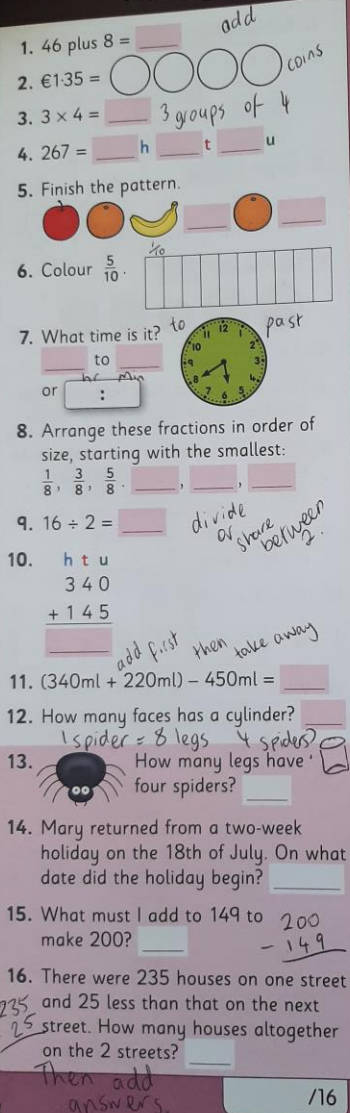 1. 46 plus 8 = add
2. €1·35 = coins
3. 3 × 4 = 3 groups of 4
4. 267 = h t u
5. Finish the pattern.
1/10
6. Colour 5/10.
7. What time is it? to past
12 1 2 3 4 5 6 7 8 9 10 11
to
hr min
or :
8. Arrange these fractions in order of
size, starting with the smallest:
1/8, 3/8, 5/8. , ,
9. 16 ÷ 2 = divide
or share
between
2.
10. h t u
3 4 0
+ 1 4 5
add first then take away
11. (340ml + 220ml) – 450ml =
12. How many faces has a cylinder?
1 spider = 8 legs 4 spiders?
13. How many legs have
four spiders?
14. Mary returned from a two-week
holiday on the 18th of July. On what
date did the holiday begin?
15. What must I add to 149 to 200
make 200? - 149
16. There were 235 houses on one street
235 and 25 less than that on the next
25 street. How many houses altogether
on the 2 streets?
Then add
answers.
/16